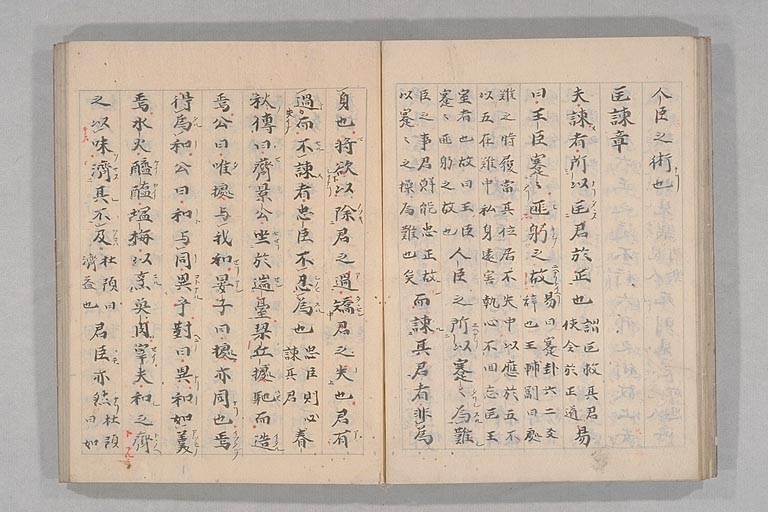 人臣之術也
匡諫章
夫諫者所以匡君於正也 謂匡救其君使合於正道 易
曰王臣蹇〻匪躬之故 易曰蹇卦六二爻辞也王輔嗣曰處
難之時履當其位居不失中以應於五不
以五在難中私身遠害執心不回志匡王
室者也故曰王臣蹇〻匪躬之故也 人臣之所以蹇〻為難
臣之事君 能忠正故以蹇〻之操為難也矣 而諫其君者非為
身也将欲以除君之過矯君之失也君有
過而不諫者忠臣不忍為也 忠臣則必諫其君 春
秋傳曰齊景公坐於遄臺梁丘據馳而造
焉公曰唯據与我和晏子曰據亦同也焉
得為和公曰和与同異乎對曰異和如羹
焉水火醯醢塩梅以烹魚肉宰夫和之齊
之以味濟其不及 杜預曰濟益也 君臣亦然 杜預曰如